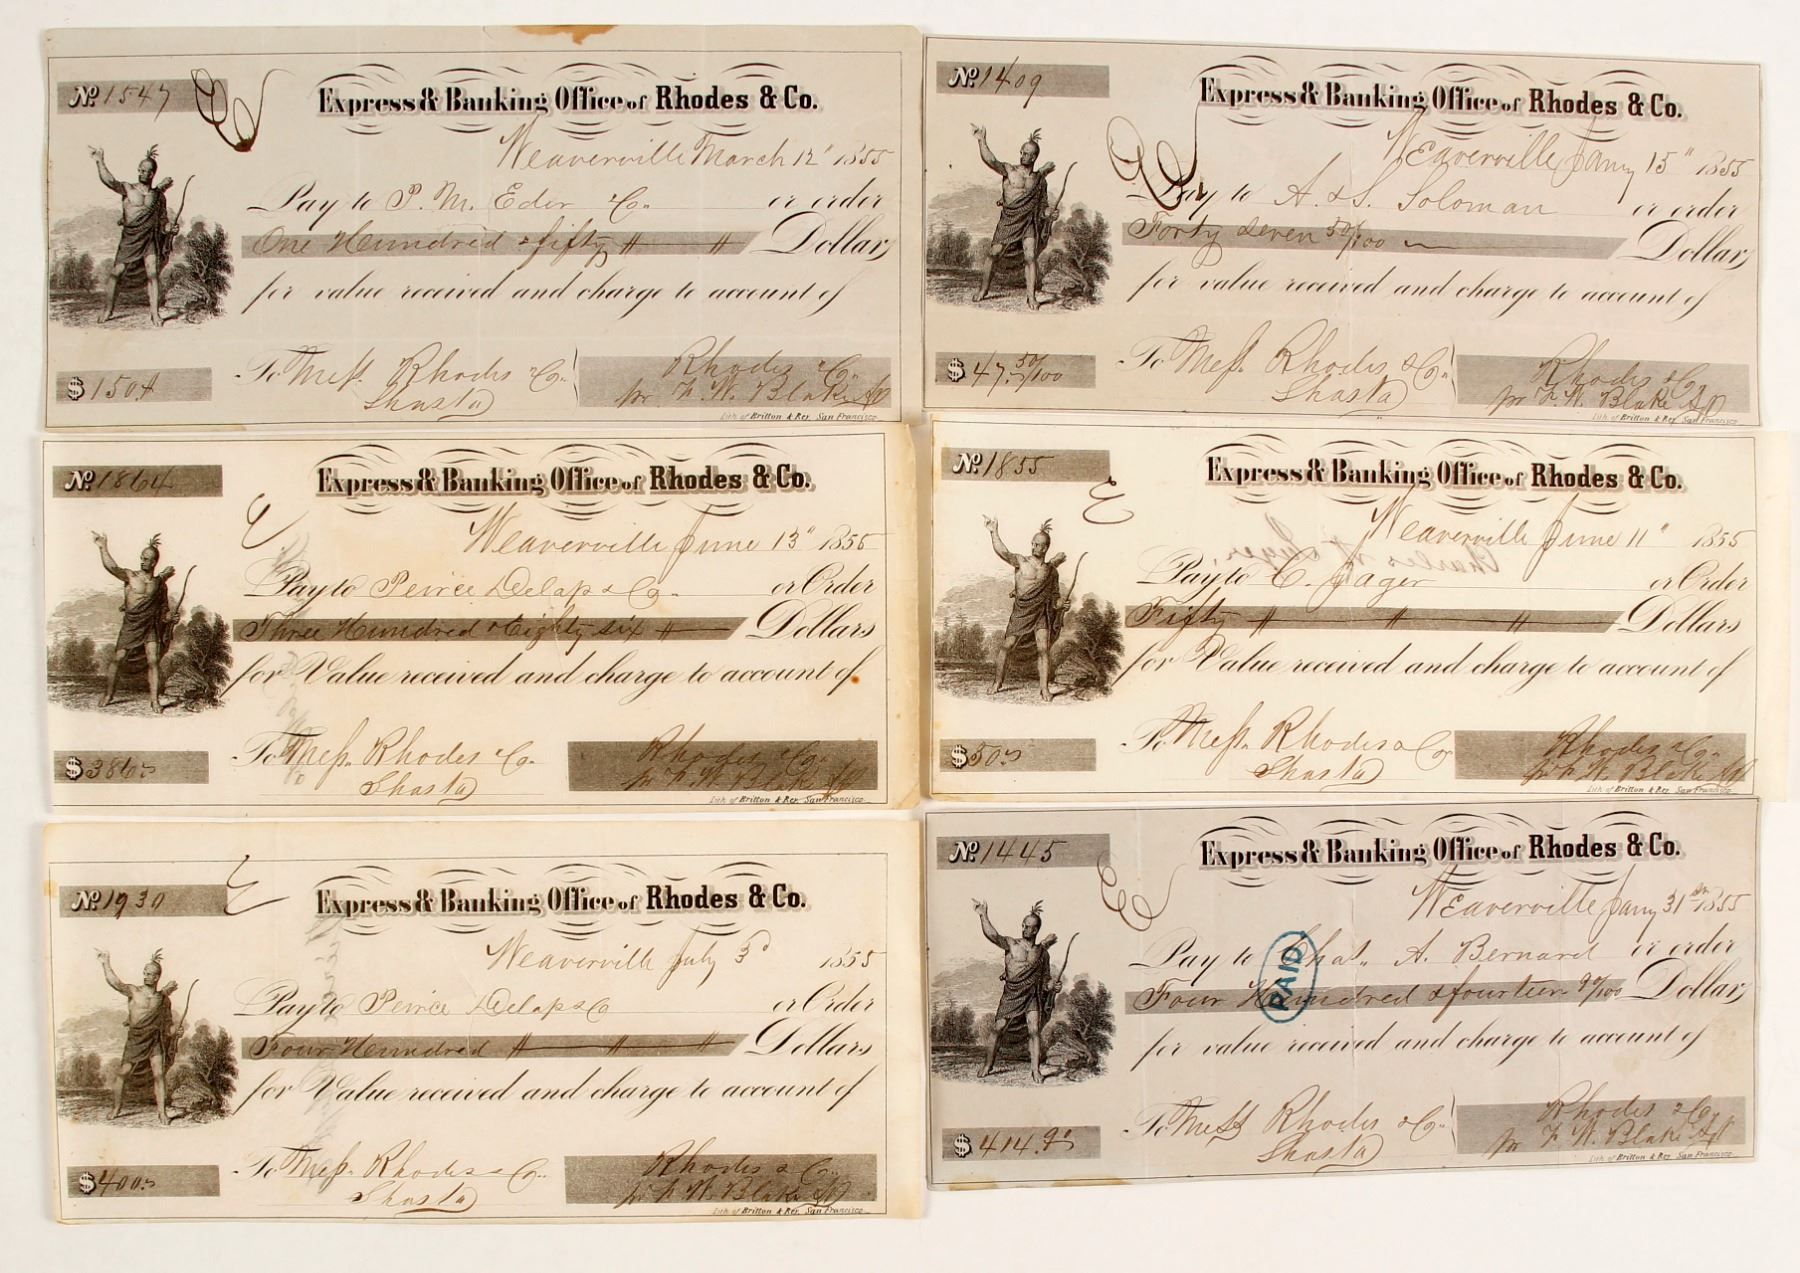 No. 1547
Express & Banking Office of Rhodes & Co.
Weaverville March 12" 1855
Pay to P. M. Eder & Co. or order
One Hundred & fifty Dollars
for value received and charge to account of
To Mess. Rhodes & Co.
Shasta
$150
Rhodes & Co.
pr F. W. Blake
Lith. of Britton & Rey. San Francisco.
No. 1409
Express & Banking Office of Rhodes & Co.
Weaverville Jany 15" 1855
Pay to A. & S. Soloman or order
Forty seven 50/100 Dollars
for value received and charge to account of
To Mess. Rhodes & Co.
Shasta
$47. 50/100
Rhodes & Co.
pr F. W. Blake
Lith. of Britton & Rey. San Francisco.
No. 1864
Express & Banking Office of Rhodes & Co.
Weaverville June 13" 1855
Pay to Peirce Delap & Co. or Order
Three Hundred & Eighty six Dollars
for Value received and charge to account of
To Mess. Rhodes & Co.
Shasta
$386
Rhodes & Co.
pr F. W. Blake
Lith. of Britton & Rey. San Francisco.
No. 1855
Express & Banking Office of Rhodes & Co.
Weaverville June 11" 1855
Pay to C. Jager or Order
Fifty Dollars
for Value received and charge to account of
To Mess. Rhodes & Co.
Shasta
$50
Rhodes & Co.
pr F. W. Blake
Lith. of Britton & Rey. San Francisco.
No. 1930
Express & Banking Office of Rhodes & Co.
Weaverville July 3d 1855
Pay to Peirce Delap & Co or Order
Four Hundred Dollars
for Value received and charge to account of
To Mess. Rhodes & Co.
Shasta
$400
Rhodes & Co.
pr F. W. Blake
Lith. of Britton & Rey. San Francisco.
No. 1445
Express & Banking Office of Rhodes & Co.
Weaverville Jany 31st 1855
Pay to Chas. A. Bernard or order
PAID
Four Hundred & fourteen 90/100 Dollars
for value received and charge to account of
To Mess Rhodes & Co.
Shasta
$414.90
Rhodes & Co.
pr F. W. Blake
Lith. of Britton & Rey. San Francisco.